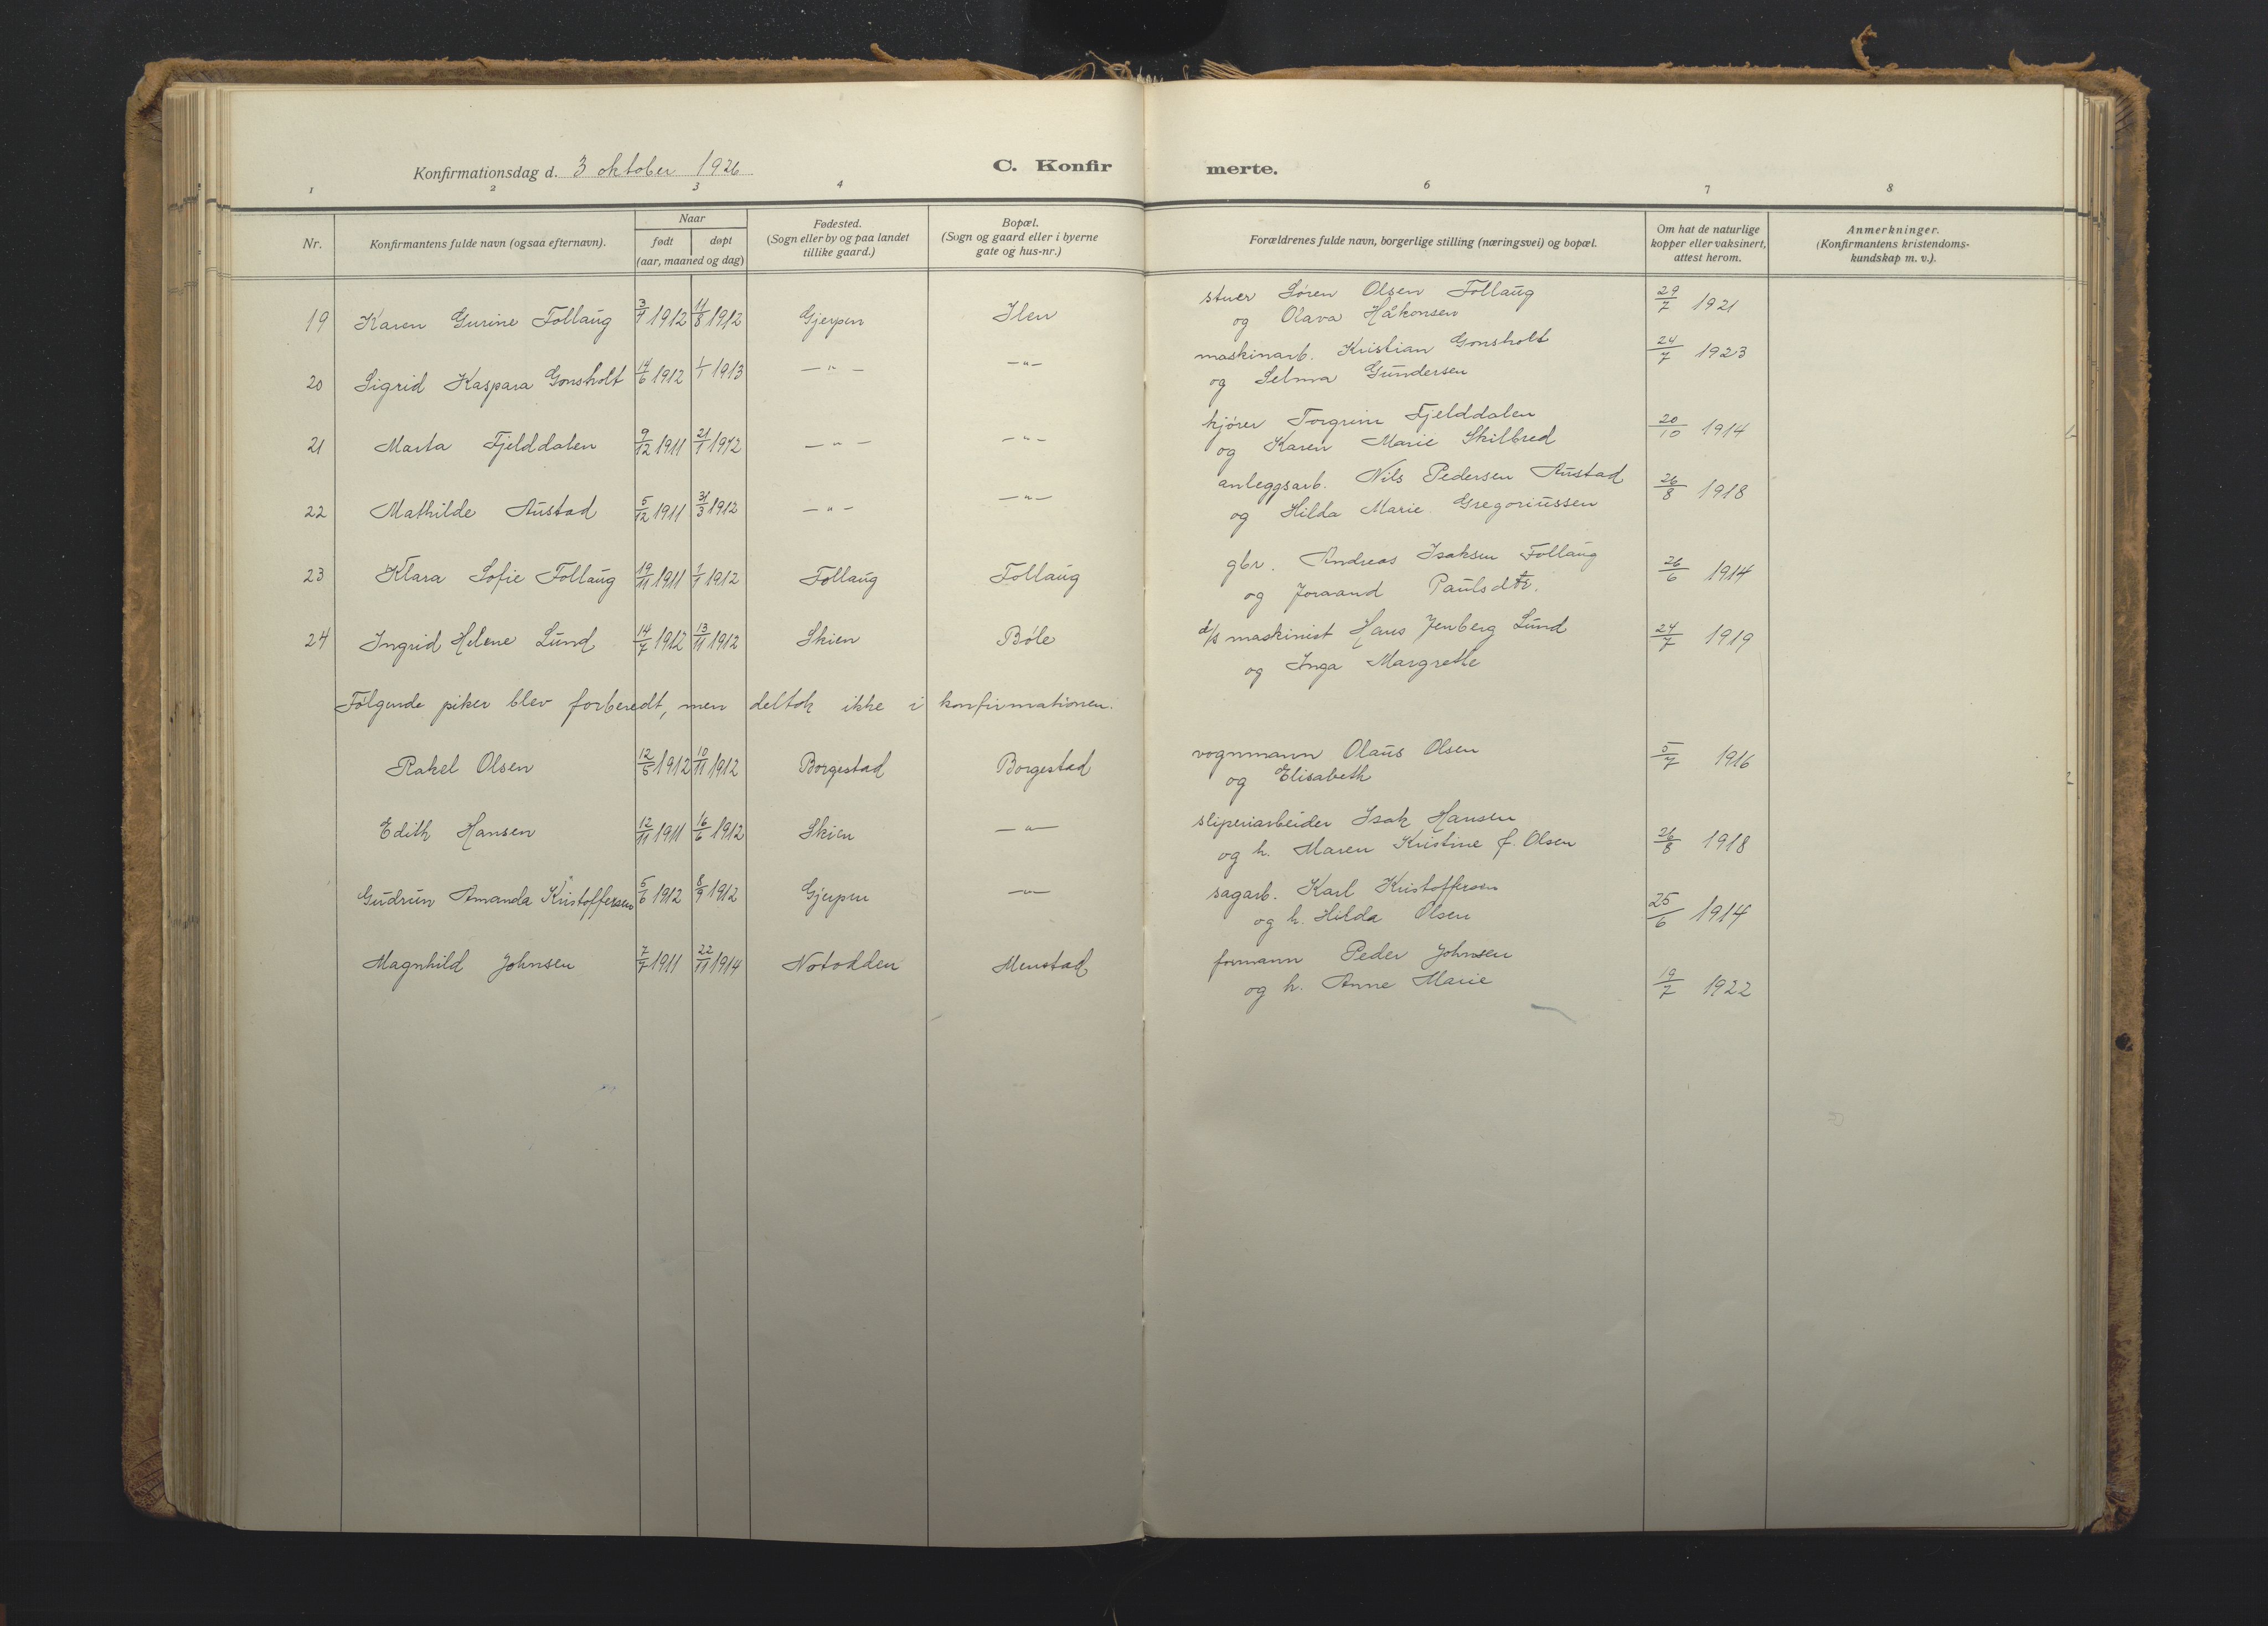 Konfirmationsdag d. 3 oktober 1926
C. Konfirmerte.
1 2 3 4 6 7 8
Nr.
Konfirmantens fulde navn (ogsaa efternavn).
Naar
født døpt
(aar, maaned og dag)
Fødested.
(Sogn eller by og paa landet
tillike gaard.)
Bopæl.
(Sogn og gaard eller i byerne
gate og hus-nr.)
Forældrenes fulde navn, borgerlige stilling (næringsvei) og bopæl.
Om hat de naturlige
kopper eller vaksinert,
attest herom.
Anmerkninger.
(Konfirmantens kristendoms-
kundskap m. v.).
19 Karen Gurine Follaug 1912 11/8 1912 Gjerpen Ilen stuer Søren Olsen Follaug 29/7 1921
og Olava Håkonsen
20 Sigrid Kaspara Gonsholt 14/6 1912 1/1 1913 — " — — " — maskinarb. Kristian Gonsholt 24/7 1923
og Selma Gundersen
21 Marta Fjelddalen 9/12 1911 21/1 1912 — " — — " — kjører Torgrim Fjelddalen 20/10 1914
og Karen Marie Skilbred
22 Mathilde Austad 5/12 1911 31/3 1912 — " — — " — anleggsarb. Nils Pedersen Austad 26/8 1918
og Hilda Marie Gregoriussen
23 Klara Sofie Follaug 19/11 1911 1/1 1912 Follaug Follaug gbr. Andreas Isaksen Follaug 26/6 1914
og Joraand Paulsdtr.
24 Ingrid Helene Lund 14/7 1912 13/11 1912 Skien Bøle d/s maskinist Hans Jenberg Lund 24/7 1919
og Inga Margrethe
Følgende piker blev forberedt, men deltok ikke i konfirmationen.
Rakel Olsen 12/5 1912 10/11 1912 Borgestad Borgestad vognmann Olaus Olsen 5/7 1916
og Elisabeth
Edith Hansen 12/11 1911 16/6 1912 Skien — " — sliperiarbeider Isak Hansen 26/8 1918
og h. Maren Kristine f. Olsen
Gudrun Amanda Kristoffersen 5/6 1912 8/9 1912 Gjerpen — " — sagarb. Karl Kristoffersen 25/6 1914
og h. Hilda Olsen
Magnhild Johnsen 7/7 1911 22/11 1914 Notodden Menstad formann Peder Johnsen 19/7 1922
og h. Anne Marie